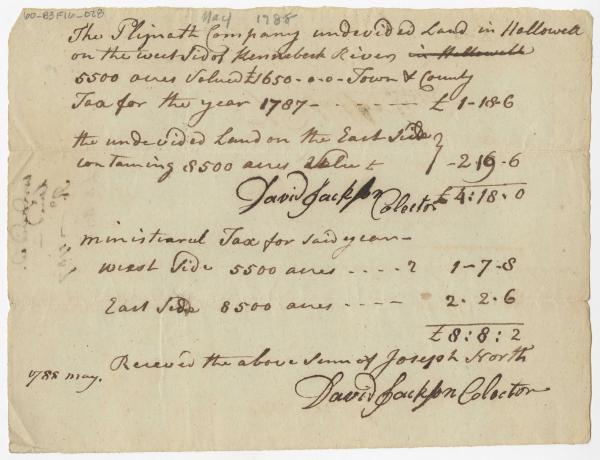 60-B3F16-028
May 1788
The Plymth Company undevided Land in Hollowell
on the west Sid of Kennebeck River in Hollowell
5500 acres Valued £1650-0-0- Town & County
Tax for the year 1787 - - - - - - £ 1-18-6
the undevided Land on the East Side
containing 8500 acres - 2 19 - 6
David Jackson Colector £4:18:0
ministearel Tax for said year -
west Side 5500 acres - - - - 1-7-8
East Side 8500 acres - - - - 2-2-6
£8:8:2
Receved the above Sum of Joseph North
1788 may.
David Jackson Colector